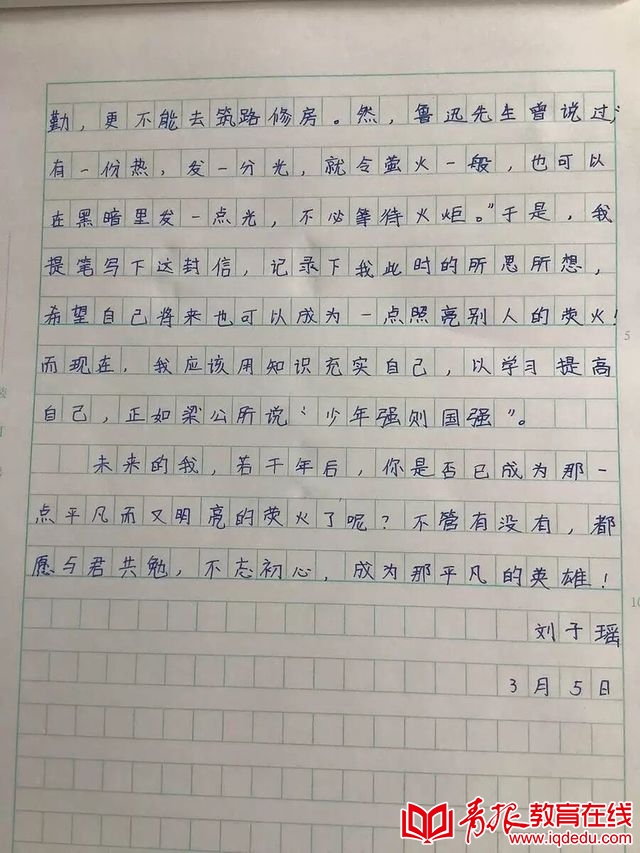 勤，更不能去筑路修房。然，鲁迅先生曾说过，
有一份热，发一分光，就令萤火一般，也可以
在黑暗里发一点光，不必等待火炬。”于是，我
提笔写下这封信，记录下我此时的所思所想，
希望自己将来也可以成为一点照亮别人的荧火！
而现在，我应该用知识充实自己，以学习提高
自己，正如梁公所说“少年强则国强”。
未来的我，若干年后，你是否已成为那一
点平凡而又明亮的荧火了呢？不管有没有，都
愿与君共勉，不忘初心，成为那平凡的英雄！
刘子瑶
3月5日
5
10
青报教育在线
www.iqdedu.com